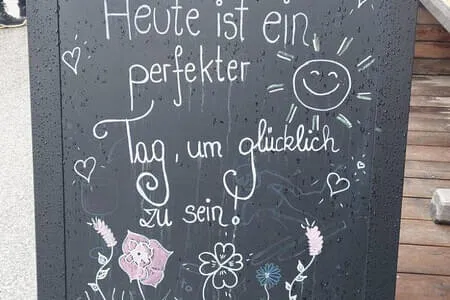 Heute ist ein
perfekter
Tag, um glücklich
zu sein!